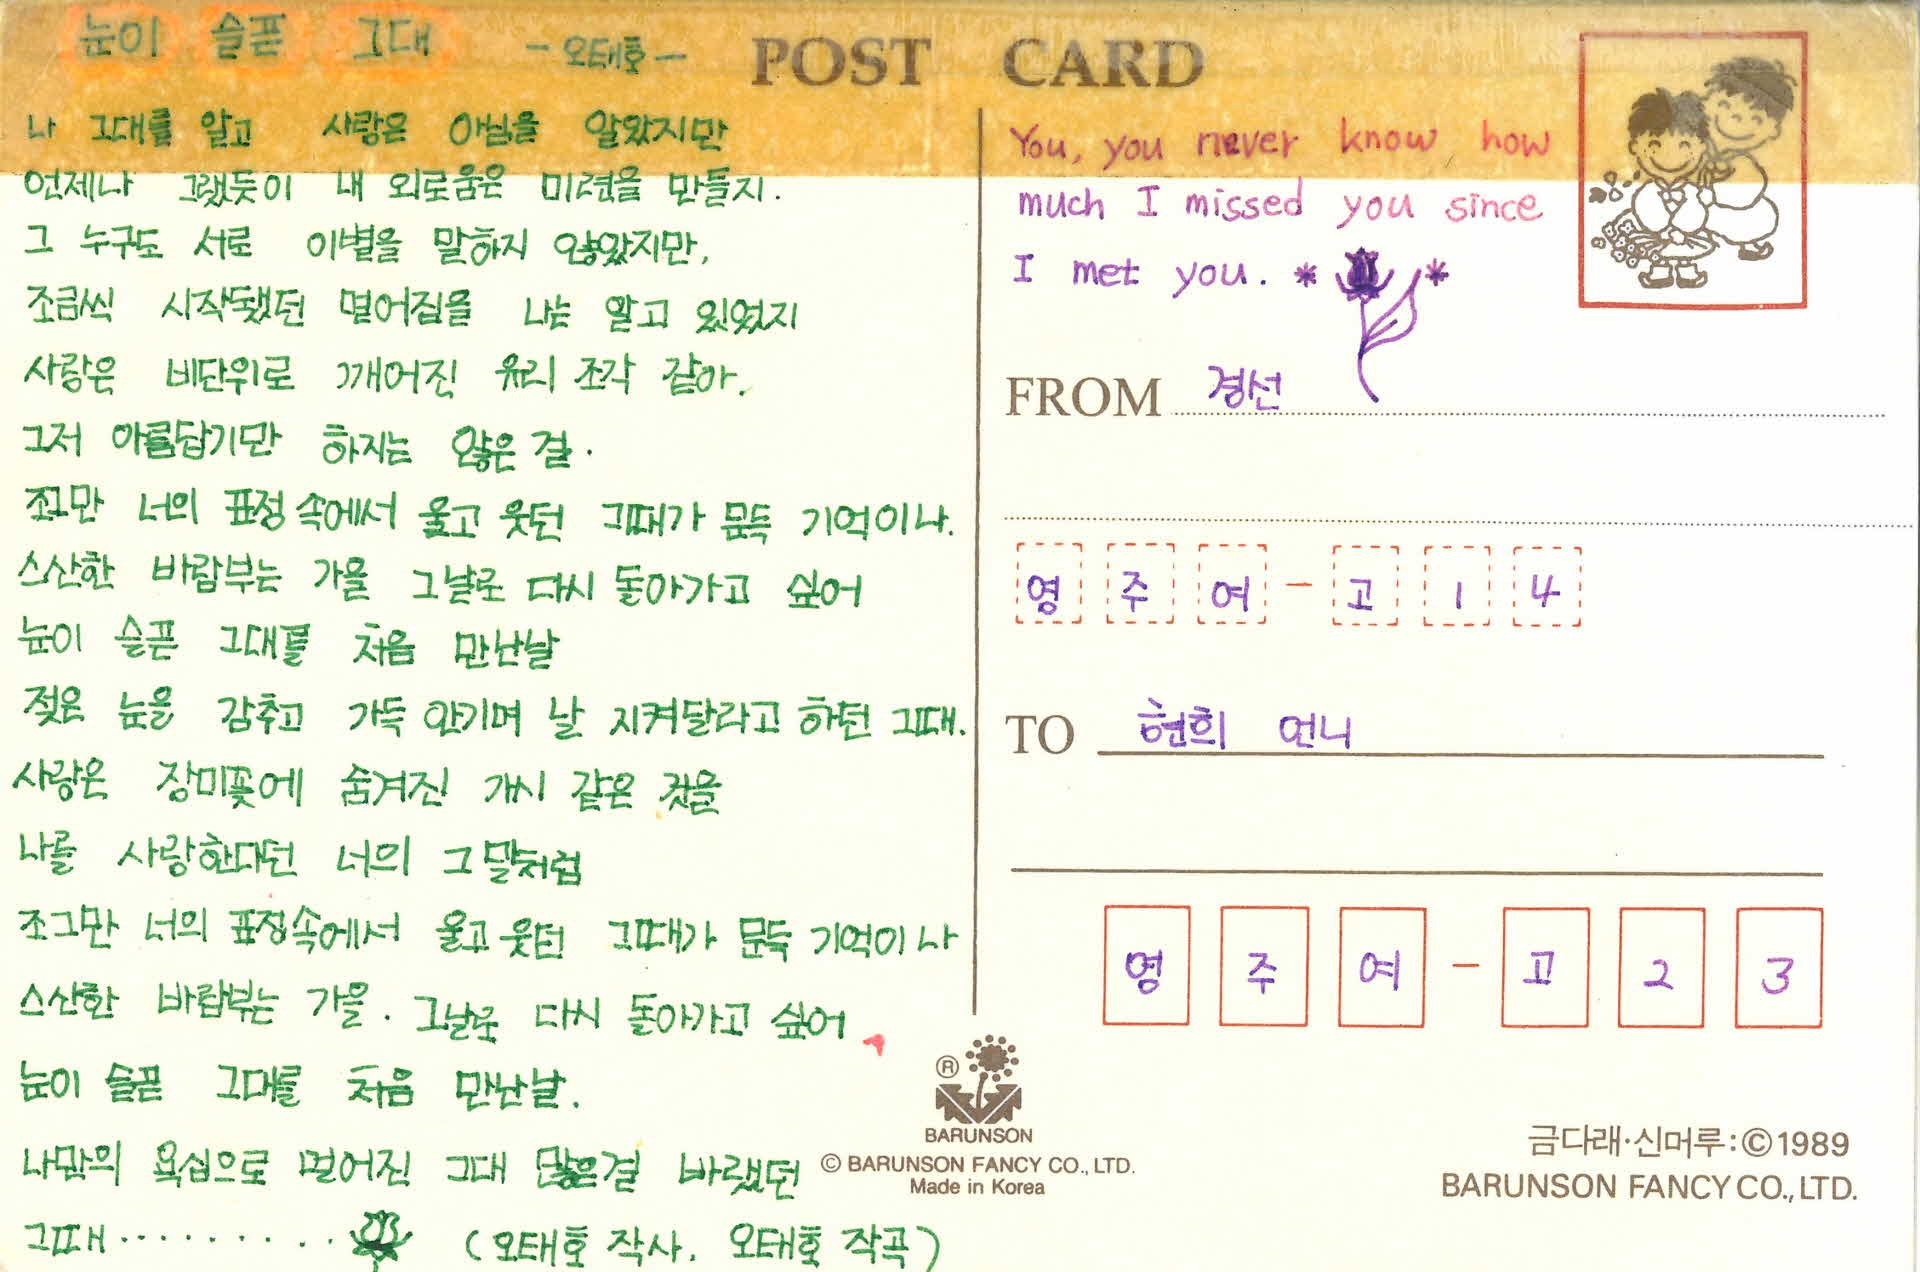 눈이 슬픈 그대 - 오태호 -
나 그대를 알고 사랑은 아님을 알았지만
언제나 그랬듯이 내 외로움은 미련을 만들지.
그 누구도 서로 이별을 말하지 않았지만,
조금씩 시작됐던 멀어짐을 나는 알고 있었지
사랑은 비단위로 깨어진 유리 조각 같아.
그저 아름답기만 하지는 않은 걸.
조그만 너의 표정 속에서 울고 웃던 그때가 문득 기억이나.
스산한 바람부는 가을 그날로 다시 돌아가고 싶어
눈이 슬픈 그대를 처음 만난날
젖은 눈을 감추고 가득 안기며 날 지켜달라고 하던 그때.
사랑은 장미꽃에 숨겨진 가시 같은 것을
나를 사랑한다던 너의 그 말처럼
조그만 너의 표정속에서 울고 웃던 그때가 문득 기억이 나
스산한 바람부는 가을. 그날로 다시 돌아가고 싶어
눈이 슬픈 그대를 처음 만난날.
나만의 욕심으로 멀어진 그대 많은걸 바랬던
그때 .......... (오태호 작사. 오태호 작곡)
POST CARD
You, you never know how
much I missed you since
I met you. * *
FROM 경선
영주여-고14
TO 현희 언니
영주여-고23
®
BARUNSON
© BARUNSON FANCY CO., LTD.
Made in Korea
금다래·신머루:©1989
BARUNSON FANCY CO., LTD.